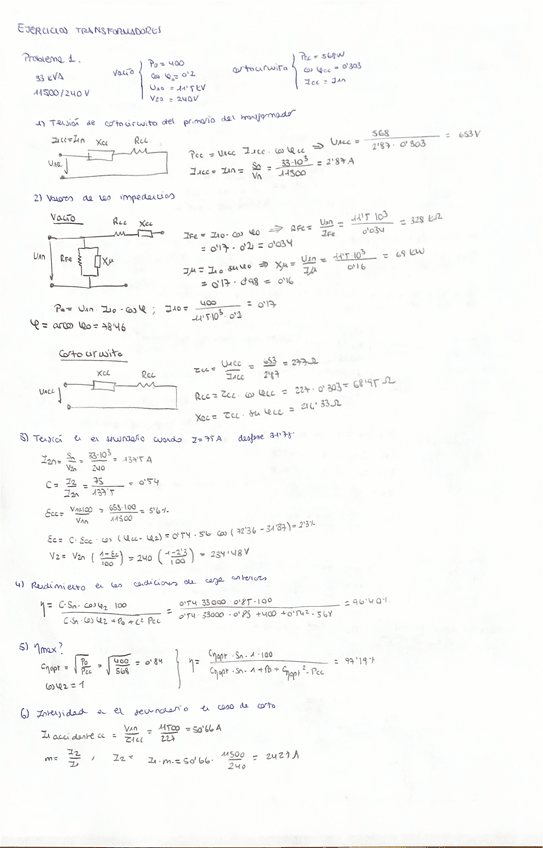 EJERCICIOS TRANSFORMADORES
Problema 1.
33 kVA
11500/240 V
vacío { P₀ = 400
cos φ₀ = 0'2
U₁₀ = 11'5 kV
V₂₀ = 240V
cortocircuito { Pcc = 568W
cos φcc = 0'303
I₁cc = I₁n
1) Tensión de cortocircuito del primario del transformador
I₁cc = I₁n Xcc Rcc
U₁cc
Pcc = U₁cc · I₁cc · cos φcc ⇒ U₁cc = 568 / (2'87 · 0'303) = 653V
I₁cc = I₁n = Sn/Vn = 33·10³ / 11500 = 2'87 A
2) Valores de las impedancias
Vacío
Rcc Xcc
U₁n RFe Xμ
IFe = I₁₀ · cos φ₀ ⇒ RFe = U₁n/IFe = 11'5·10³ / 0'034 = 328 kΩ
= 0'17 · 0'2 = 0'034
Iμ = I₁₀ sen φ₀ ⇒ Xμ = U₁n/Iμ = 11'5·10³ / 0'16 = 69 kW
= 0'17 · 0'98 = 0'16
P₀ = U₁n · I₁₀ · cos φ ; I₁₀ = 400 / (11'5·10³ · 0'2) = 0'17
φ = arcos φ₀ = 78'46
Cortocircuito
Xcc Rcc
U₁cc
Zcc = U₁cc/I₁cc = 653/2'87 = 227Ω
Rcc = Zcc · cos φcc = 227 · 0'303 = 68'95 Ω
Xcc = Zcc · sen φcc = 216'33 Ω
3) Tensión en el secundario cuando I = 75A desfase 31'78º
I₂n = Sn/V₂n = 33·10³ / 240 = 137'5 A
C = I₂/I₂n = 75/137'5 = 0'54
Ecc = V₁cc·100 / V₁n = 653·100 / 11500 = 5'6%
Ec = C · Ecc · cos (φcc - φ₂) = 0'54 · 5'6 cos (72'36 - 31'87) = 2'3%
V₂ = V₂n (1-Ec / 100) = 240 (1-2'3 / 100) = 234'48V
4) Rendimiento en las condiciones de carga anteriores
η = C·Sn·cos φ₂ 100 / (C·Sn·cos φ₂ + P₀ + C² Pcc) = 0'54·33000·0'85·100 / (0'54·33000·0'85 + 400 + 0'54²·568) = 96'40%
5) ηmax?
Cηopt = √(P₀/Pcc) = √(400/568) = 0'84
cos φ₂ = 1
} η = Cηopt · Sn · 1 · 100 / (Cηopt · Sn · 1 + P₀ + Cηopt² · Pcc) = 97'19%
6) Intensidad en el secundario en caso de corto
I₁ accidente cc = V₁n/Z₁cc = 11500/227 = 50'66 A
m = I₂/I₁ , I₂ = I₁ · m = 50'66 · 11500/240 = 2427 A